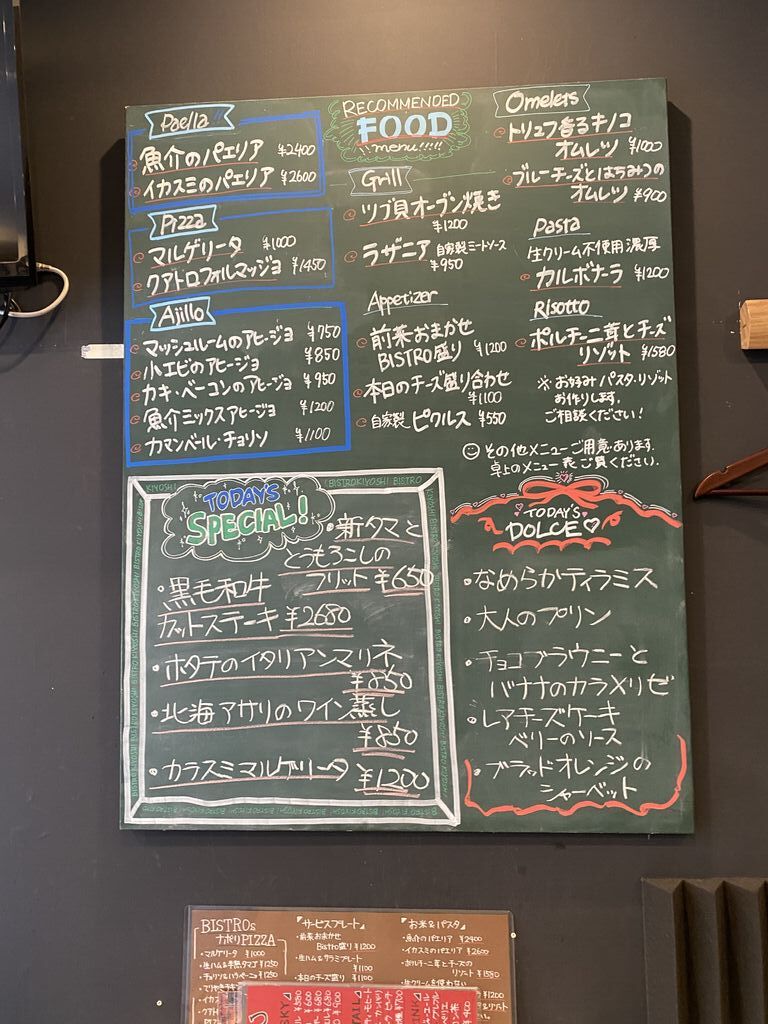 Paella
魚介のパエリア ¥2400
イカスミのパエリア ¥2600
Pizza
マルゲリータ ¥1000
クアトロフォルマッジョ ¥1450
Ajillo
マッシュルームのアヒージョ ¥750
小エビのアヒージョ ¥850
カキ・ベーコンのアヒージョ ¥950
魚介ミックスアヒージョ ¥1200
カマンベール・チョリソ ¥1100
RECOMMENDED
FOOD
menu!!!!!
Grill
ツブ貝オーブン焼き
¥1200
ラザニア 自家製ミートソース
¥950
Appetizer
前菜おまかせ
BISTRO盛り ¥1200
本日のチーズ盛り合わせ
¥1100
自家製 ピクルス ¥550
Omelets
トリュフ香るキノコ
オムレツ ¥1000
ブルーチーズとはちみつの
オムレツ ¥900
Pasta
生クリーム不使用濃厚
カルボナーラ ¥1200
Risotto
ポルチーニ茸とチーズ
リゾット ¥1580
※お好みパスタ・リゾット
お作りします。
ご相談ください!
その他メニューご用意あります。
卓上のメニュー表ご覧ください。
KIYOSHI BISTROKIYOSHI BISTRO
TODAY'S
SPECIAL!
・新タマと
とうもろこしの
フリット ¥650
・黒毛和牛
カットステーキ ¥2680
・ホタテのイタリアンマリネ
¥850
・北海アサリのワイン蒸し
¥850
・カラスミマルゲリータ ¥1200
TODAY'S
DOLCE♡
・なめらかティラミス
・大人のプリン
・チョコブラウニーと
バナナのカラメリゼ
・レアチーズケーキ
ベリーのソース
・ブラッドオレンジの
シャーベット
BISTROs
ナポリPIZZA
・マルゲリータ ¥1000
・生ハム&半熟タマゴ ¥1250
・チョリソ&ハラペーニョ ¥1250
サービスプレート
・前菜おまかせ
Bistro盛り ¥1200
・生ハム&サラミプレート
¥1100
・本日のチーズ盛り ¥1100
お米&パスタ
・魚介のパエリア ¥2400
・イカスミのパエリア ¥2600
・ポルチーニ茸とチーズの
リゾット ¥1580
・生クリームを使わない